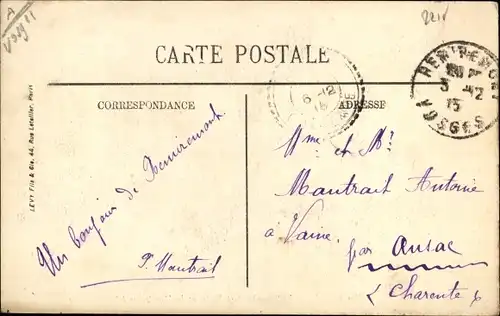 CARTE POSTALE
CORRESPONDANCE
ADRESSE
REMIREMONT
3-12
15
VOSGES
6-12
15
LEVY Fils & Cie, 44, Rue Letellier, Paris
Un bonjour de Remiremont
P. Mautrait
Mme et Mr
Mautrait Antoine
à Vaine
par Ansac
Charente